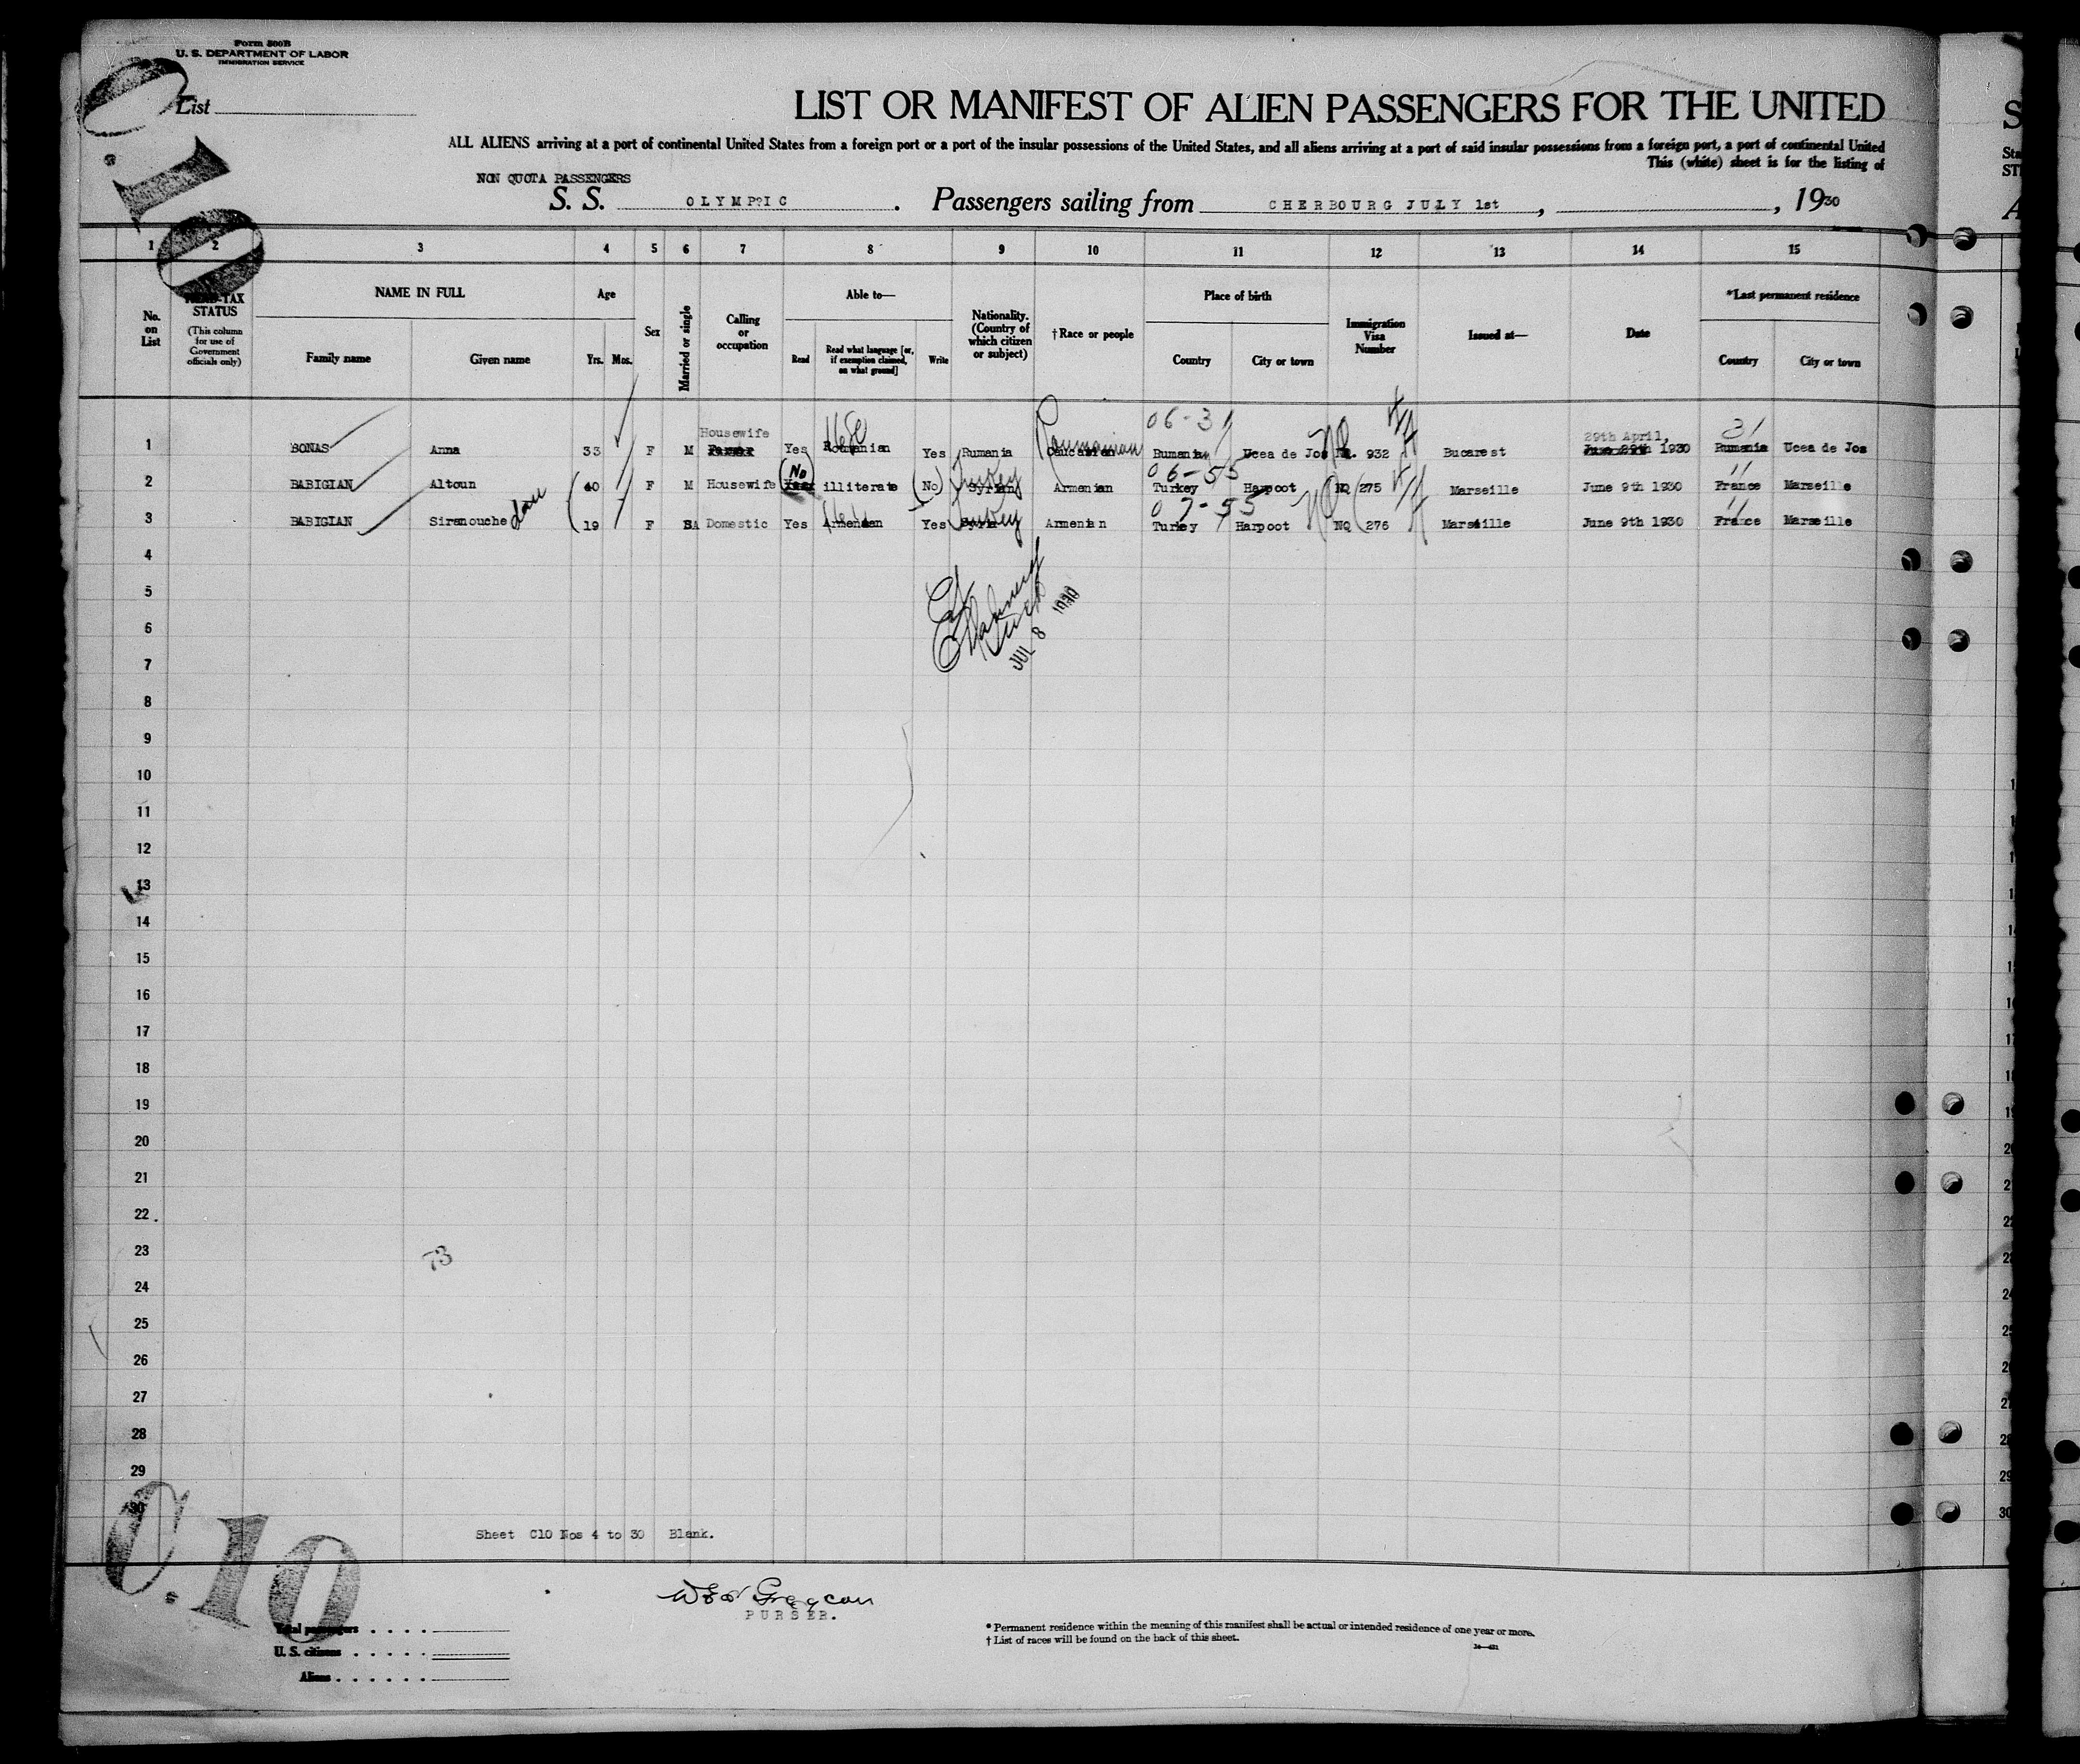 Form 500B
U. S. DEPARTMENT OF LABOR
IMMIGRATION SERVICE
C.10
List
LIST OR MANIFEST OF ALIEN PASSENGERS FOR THE UNITED
ALL ALIENS arriving at a port of continental United States from a foreign port or a port of the insular possessions of the United States, and all aliens arriving at a port of said insular possessions from a foreign port, a port of continental United
This (white) sheet is for the listing of
NON QUOTA PASSENGERS
S. S. OLYMPIC. Passengers sailing from CHERBOURG JULY 1st, , 1930
1 2 3 4 5 6 7 8 9 10 11 12 13 14 15
No. on List
HEAD-TAX STATUS
(This column for use of Government officials only)
NAME IN FULL
Family name Given name
Age
Yrs. Mos.
Sex
Married or single
Calling or occupation
Able to—
Read Read what language [or, if exemption claimed, on what ground] Write
Nationality. (Country of which citizen or subject)
†Race or people
Place of birth
Country City or town
Immigration Visa Number
Issued at—
Date
*Last permanent residence
Country City or town
06-31 31
Housewife Roumanian 29th April,
1 BONAS Anna 33 F M Yes Roumanian Yes Rumania Caucasian Rumania Ucea de Jos 932 Bucarest June 29th 1930 Rumania Ucea de Jos
No Turkey 06-55 11
2 BABIGIAN Altoun 40 F M Housewife illiterate No Syrian Armenian Turkey Harpoot NQ 275 Marseille June 9th 1930 France Marseille
Turkey 07-55 11
3 BABIGIAN Siranouche 19 F S Domestic Yes Armenian Yes Syria Armenian Turkey Harpoot NQ 276 Marseille June 9th 1930 France Marseille
4
5
JUL 8 1930
6
7
8
9
10
11
12
13
14
15
16
17
18
19
20
21
22
23
73
24
25
26
27
28
29
30
Sheet C10 Nos 4 to 30 Blank.
C.10
PURSER.
Total passengers
U. S. citizens
Aliens
* Permanent residence within the meaning of this manifest shall be actual or intended residence of one year or more.
† List of races will be found on the back of this sheet.